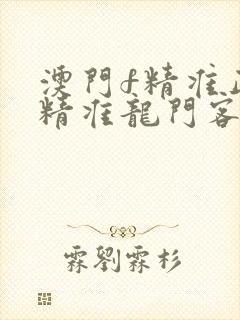 澳門f精准
精准龍門客
霖劉霖杉